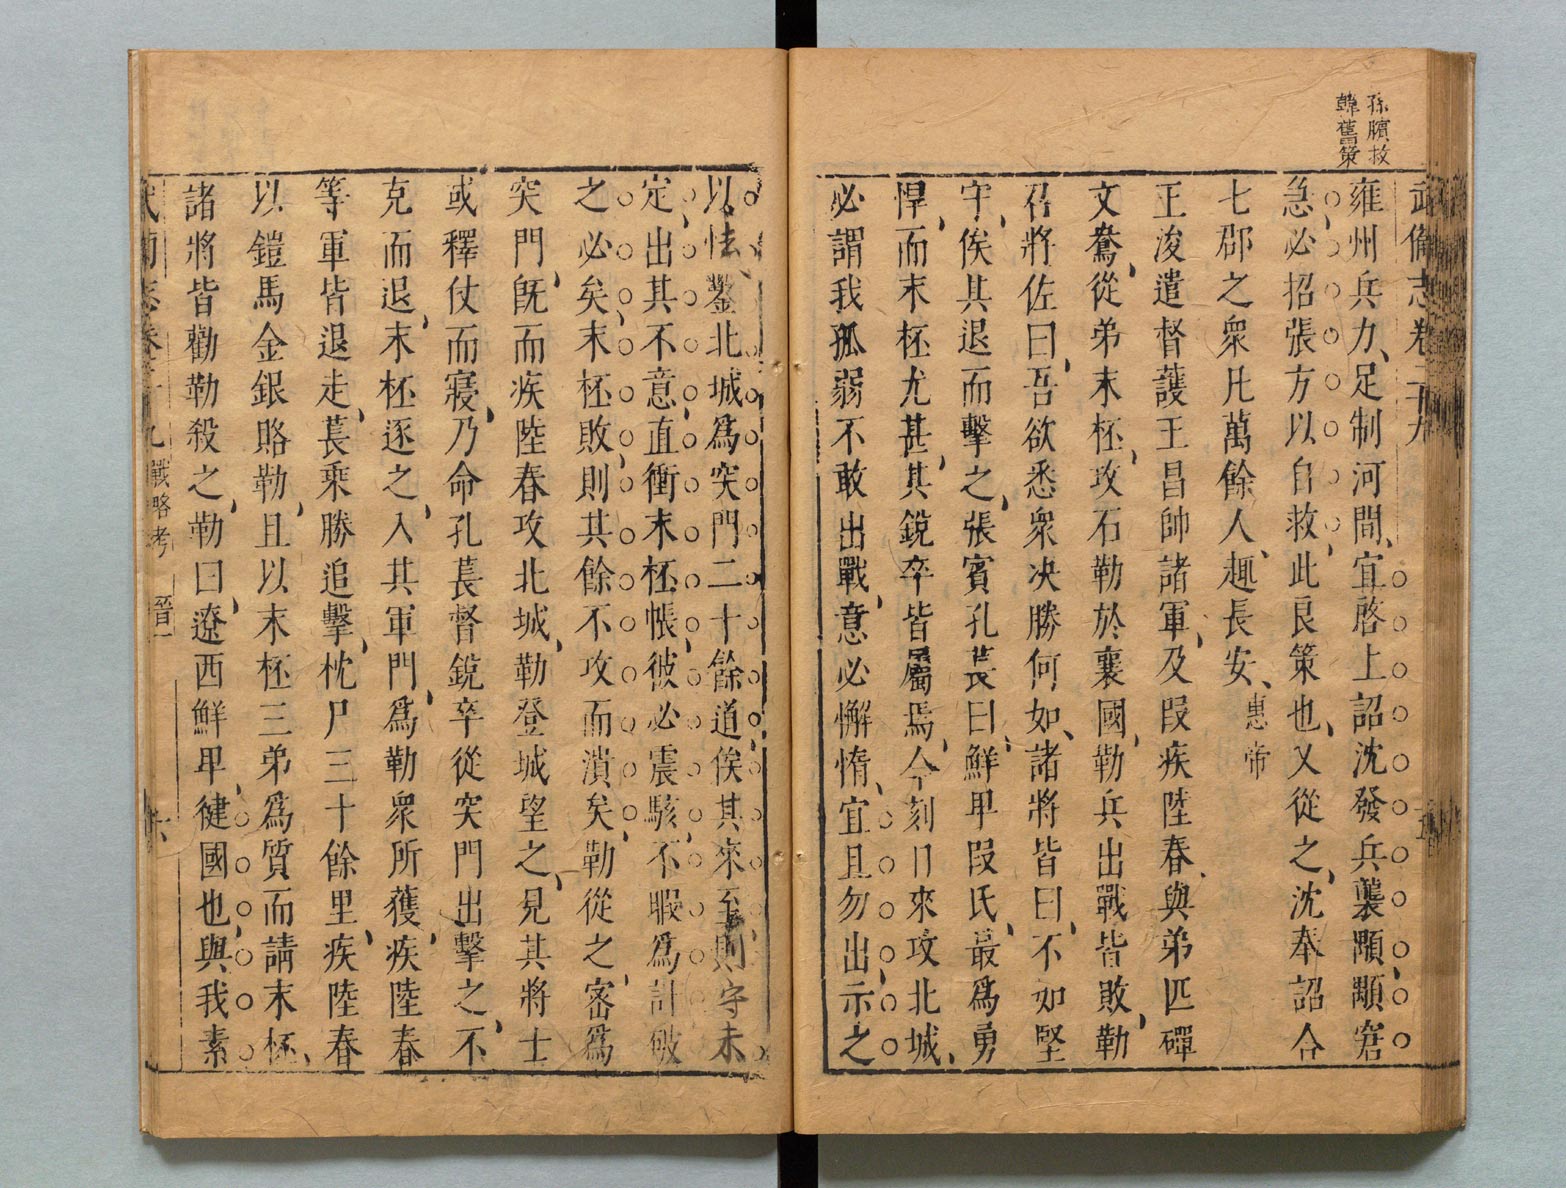 孫臏救
韓舊策
武備志卷二十九
雍州兵力、足制河間、宜啓上詔沈發兵襲顒、顒窘
急、必招張方以自救、此良策也、又從之、沈奉詔合
七郡之衆凡萬餘人、趣長安、惠帝
王浚遣督護王昌帥諸軍、及段疾陸眷、與弟匹磾
文鴦、從弟末柸、攻石勒於襄國、勒兵出戰皆敗、勒
召將佐曰、吾欲悉衆决勝何如、諸將皆曰、不如堅
守、俟其退而擊之、張賓孔萇曰、鮮卑段氏、最爲勇
悍、而末柸尤甚、其銳卒皆屬焉、今刻日來攻北城、
必謂我孤弱不敢出戰、意必懈惰、宜且勿出、示之
以怯、鑿北城爲突門二十餘道、俟其來至、則守未
定、出其不意、直衝末柸帳、彼必震駭、不暇爲計破
之必矣、末柸敗、則其餘不攻而潰矣、勒從之、密爲
突門、旣而疾陸眷攻北城、勒登城望之、見其將士
或釋仗而寢、乃命孔萇督銳卒從突門出擊之、不
克而退、末柸逐之、入其軍門、爲勒衆所獲、疾陸眷
等軍皆退走、萇乘勝追擊、枕尸三十餘里、疾陸眷
以鎧馬金銀賂勒、且以末柸三弟爲質而請末柸、
諸將皆勸勒殺之、勒曰、遼西鮮卑、健國也、與我素
武備志卷二十九 戰略考 晉一 六